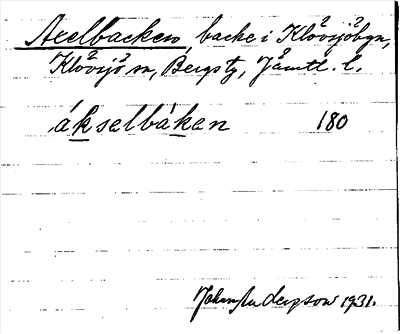 Axelbacken, backe i Klövsjöbyn,
Klövsjö sn, Bergs tg, Jämtl. l.
ákselbàken 180
Johan Andersson 1931.